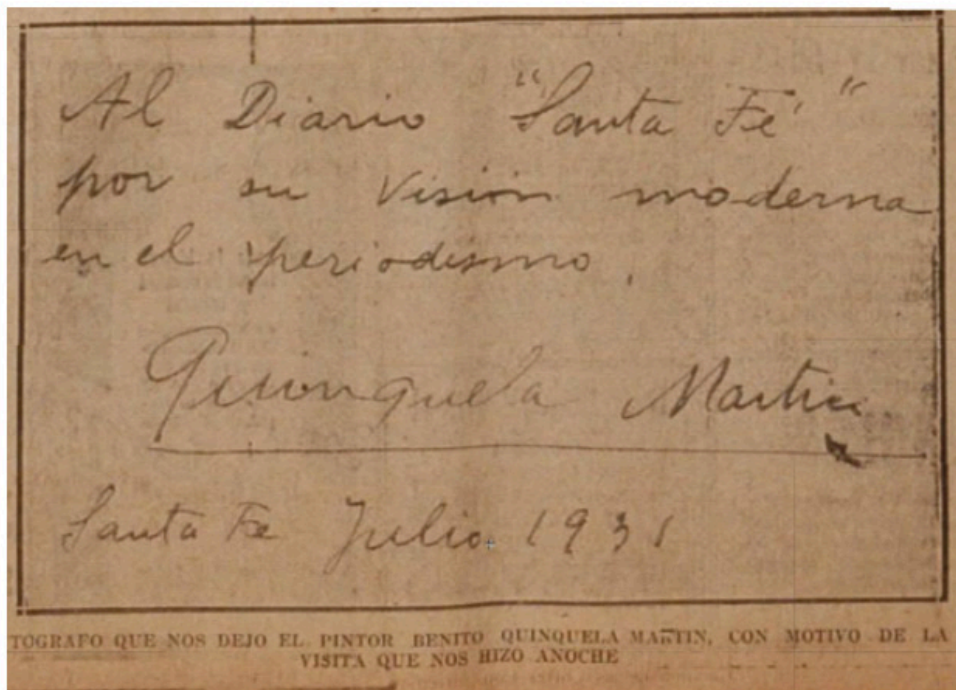 Al Diario "Santa Fé"
por su visión moderna
en el periodismo.
Quinquela Martin
Santa Fe Julio 1931
TOGRAFO QUE NOS DEJO EL PINTOR BENITO QUINQUELA MARTIN, CON MOTIVO DE LA
VISITA QUE NOS HIZO ANOCHE